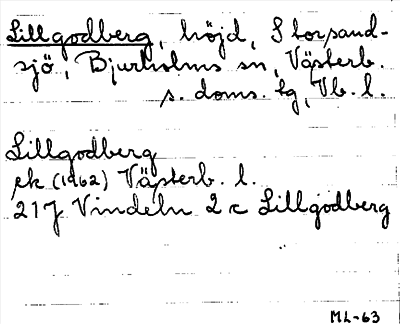 Lillgodberg, höjd, Storsand-
sjö, Bjurholms sn, Västerb.
s. doms. lg, Vb. l.
Lillgodberg
ek (1962) Västerb. l.
21J Vindeln 2 c Lillgodberg
ML-63